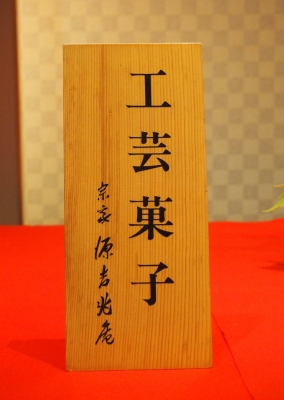 工芸菓子
宗家 源吉兆庵